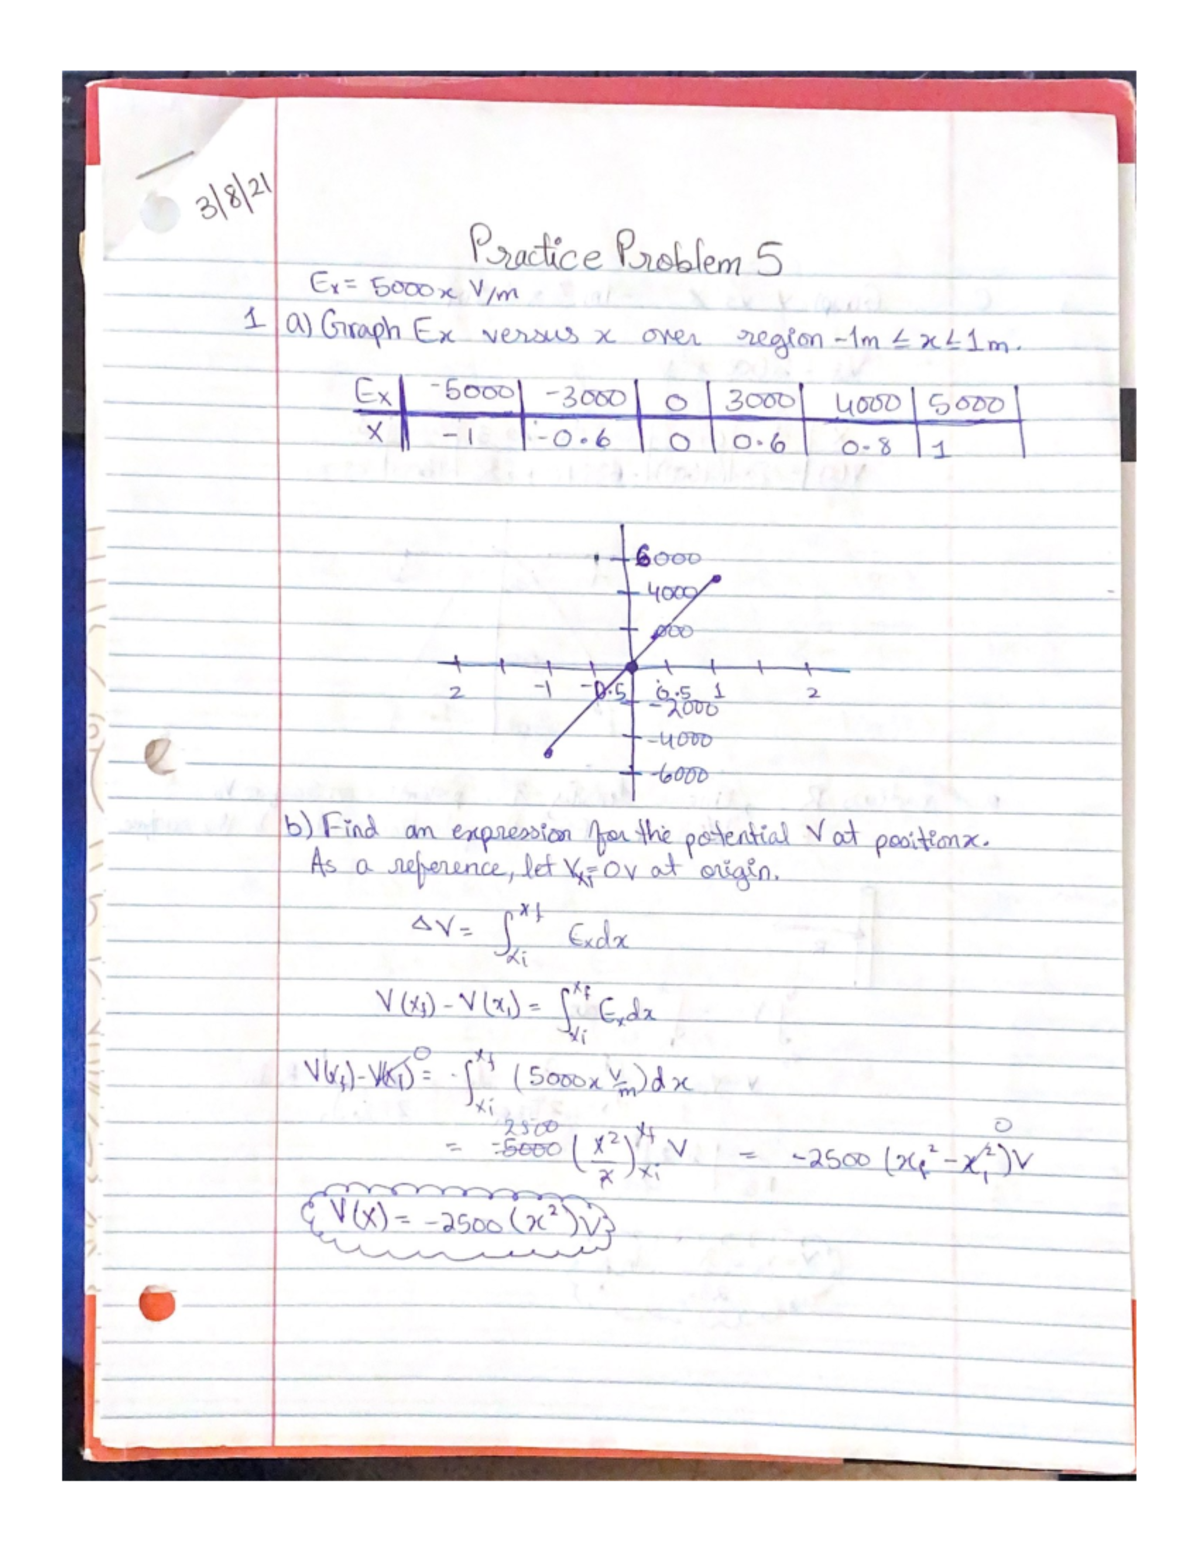 3/8/21
Practice Problem 5
Ex = 5000x V/m
1 a) Graph Ex versus x over region -1m ≤ x ≤ 1m.
Ex | -5000 | -3000 | 0 | 3000 | 4000 | 5000
X | -1 | -0.6 | 0 | 0.6 | 0.8 | 1
6000
4000
000
2 -1 -0.5 0.5 1 2
-2000
-4000
-6000
b) Find an expression for the potential V at position x.
As a reference, let Vxi = 0V at origin.
ΔV = ∫xi^xf Ex dx
V(xf) - V(x1) = ∫xi^xf Ex dx
V(xf) - V(x1)^0 = -∫xi^xf (5000x V/m) dx
2500
= -5000 (x²/2)xi^xf V = -2500 (xf² - x1²)^0 V
V(x) = -2500 (x²) V